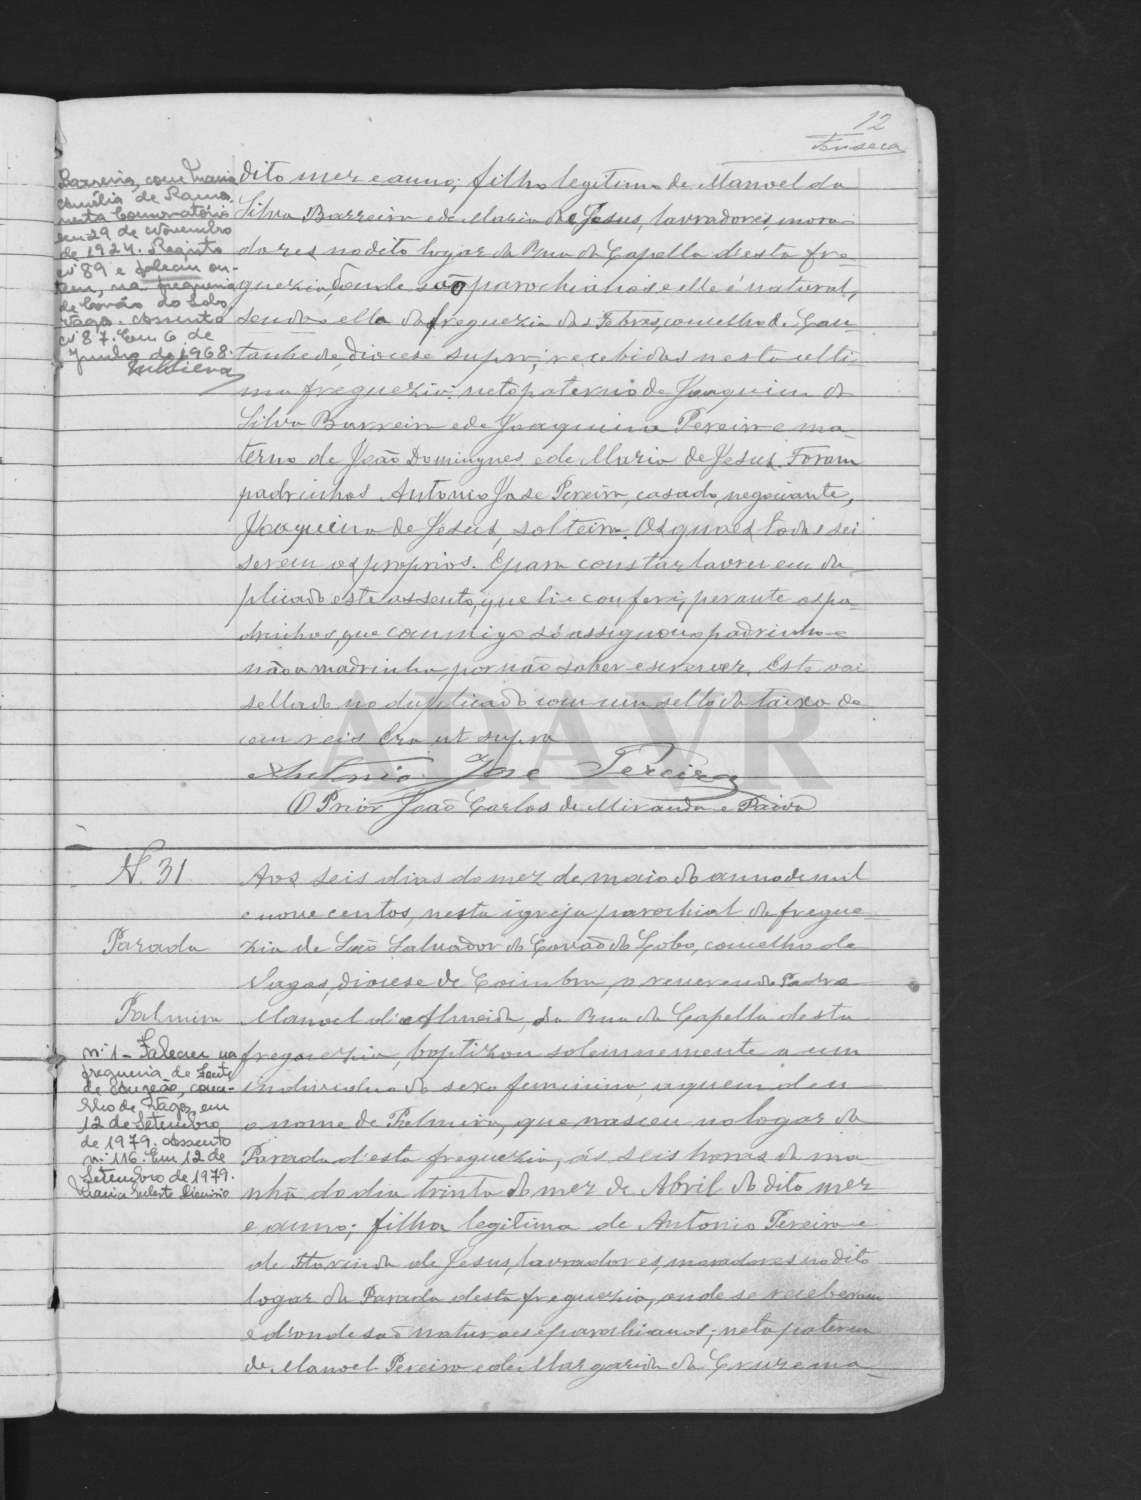 12
Fonseca
Barreira, com Maria
Amélia de Ramos
nesta Conservatória
em 29 de Novembro
de 1924. Registo
nº 89 e faleceu on-
tem, na freguesia
de Covão do Lobo,
Vagos. Assento
nº 87. Em 6 de
Junho de 1968.
dito mez e anno; filho legitimo de Manoel da
Silva Barreira e de Maria de Jesus, lavradores, mora-
dores no dito logar da Rua da Capella d'esta fre-
guezia, d'onde são parochianos e elle é natural,
sendo ella da freguezia das Febres, concelho de Can-
tanhede, diocese supra; recebidos nesta ulti-
ma freguezia: neto paterno de Joaquim da
Silva Barreira e de Joaquina Pereira e ma-
terno de João Domingues e de Maria de Jesus. Foram
padrinhos Antonio Jose Pereira, casado, negociante,
Joaquina de Jesus, solteira. Os quaes todos sei
serem os proprios. E para constar lavrei em du-
plicado este assento, que li e conferi, perante os pa-
drinhos, que commigo só assignou o padrinho e
não a madrinha, por não saber escrever. Este vai
sellado no duplicado com um sello da taixa de
cem reis. Era ut supra
Antonio Jose Pereira
O Prior João Carlos de Miranda e Paiva
N. 31
Parada
Palmira
nº 1 - Faleceu na
freguesia de Fonte
de Angeão, conce-
lho de Vagos, em
12 de Setembro
de 1979. Assento
nº 116. Em 12 de
Setembro de 1979.
Aos seis dias do mez de maio do anno de mil
e nove centos, nesta igreja parochial da fregue-
zia de São Salvador do Covão do Lobo, concelho de
Vagos, diocese de Coimbra, o reverendo Padre
Manoel d'Almeida, da Rua da Capella desta
freguezia, baptizou solemnemente a um
individuo do sexo feminino, a quem deu
o nome de Palmira, que nasceu no logar da
Parada d'esta freguezia, ás seis horas da ma-
nhã do dia trinta do mez de Abril do dito mez
e anno; filha legitima de Antonio Pereira e
de Florinda de Jesus, lavradores, moradores no dito
logar da Parada desta freguezia, onde se receberam
e d'onde são naturaes e parochianos; neta paterna
de Manoel Pereira e de Margarida da Cruz e ma-
ADAVR